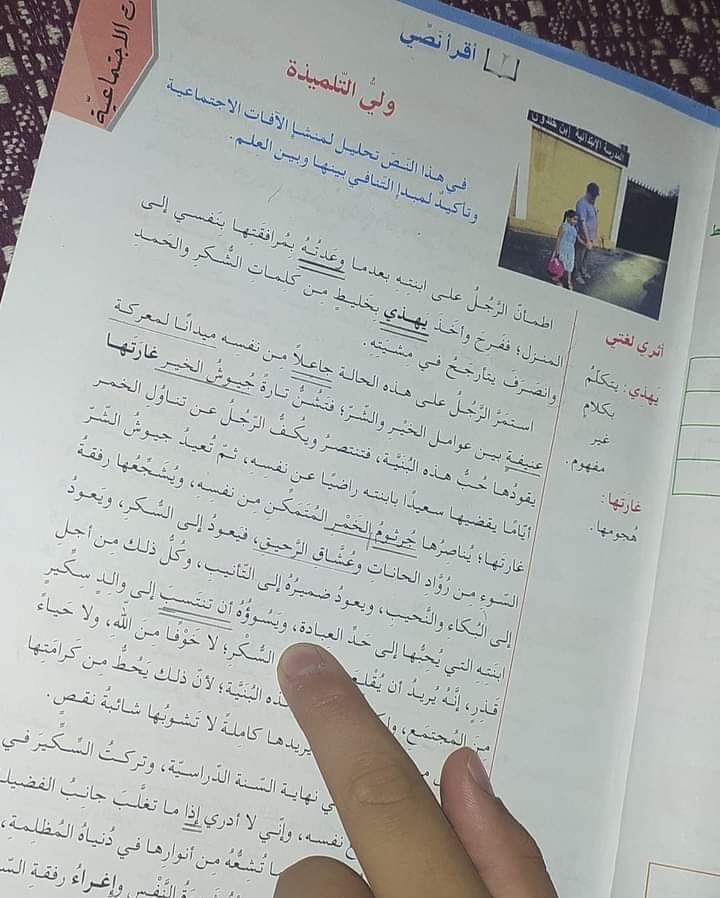 ت الاجتماعيّة
٢ أقرأ نصّي
وليُّ التّلميذة
في هذا النّصّ تحليل لمنشإ الآفات الاجتماعية
وتأكيدٌ لمبدإ التّنافي بينها وبين العِلم.
المدرسة الإبتدائية إبن خلدون
أثري لغتي
يَهذي: يتكلّمُ
بكلامٍ
غير
مفهوم.
غارتها:
هُجومها.
اطمأنّ الرَّجُلُ على ابنتِه بعدما وعَدتُهُ بمُرافقَتها بنَفسي إلى
المنزل؛ ففَرحَ وأخذَ يهذي بخليطٍ من كلمات الشُّكر والحمدِ
وانصَرفَ يتأرجحُ في مشيَتِهِ.
استمَرَّ الرَّجُلُ على هذه الحالة جاعلاً من نفسِه ميدانًا لمعركة
عنيفةٍ بين عوامل الخيْر والشّرّ؛ فتشُنُّ تارةً جُيوشُ الخير غارَتَها
يقودُها حُبُّ هذه البُنَيَّة، فتنتصرُ ويكُفُّ الرّجُلُ عن تناوُلِ الخمر
أيّامًا يقضيها سعيدًا بابنته راضيًا عن نفسِه، ثمّ تُعيدُ جيوشُ الشّرّ
غارتَها؛ يُناصِرُها جُرثومُ الخَمْرِ المُتَمَكِّنِ مِن نفسِهِ، ويُشجِّعُها رفقةُ
السّوءِ مِن رُوَّادِ الحاناتِ وعُشَّاقِ الرَّحيقِ، فيَعودُ إلى السُّكر، ويَعودُ
إلى البُكاء والنَّحيب، ويعودُ ضميرُهُ إلى التَّأنيبِ، وكُلُّ ذلك مِن أجل
ابنَتِه التي يُحبُّها إلى حَدِّ العبادة، ويَسُوؤُه أن تَنتَسبَ إلى والدٍ سكِّيرٍ
قذرٍ، إنَّهُ يُريدُ أن يُقلِعَ السُّكْرِ؛ لا خَوْفًا مِنَ اللَّه، ولا حياءً
مِنَ المُجتَمَعِ، ه البُنَيَّة؛ لأنّ ذلك يَحُطُّ مِن كَرامَتِها
يريدها كاملةً لا تَشوبُها شائبةُ نقصٍ.
ي نهاية السّنة الدّراسيّة، وتركتُ السِّكّيرَ في
نفسه، وإنّي لا أدري إذا ما تغلَّبَ جانِبُ الفضيلة
ا تُشِعُّهُ مِن أنوارها في دُنياهُ المُظلِمة،
النَّفْس وإغراءُ رفقة